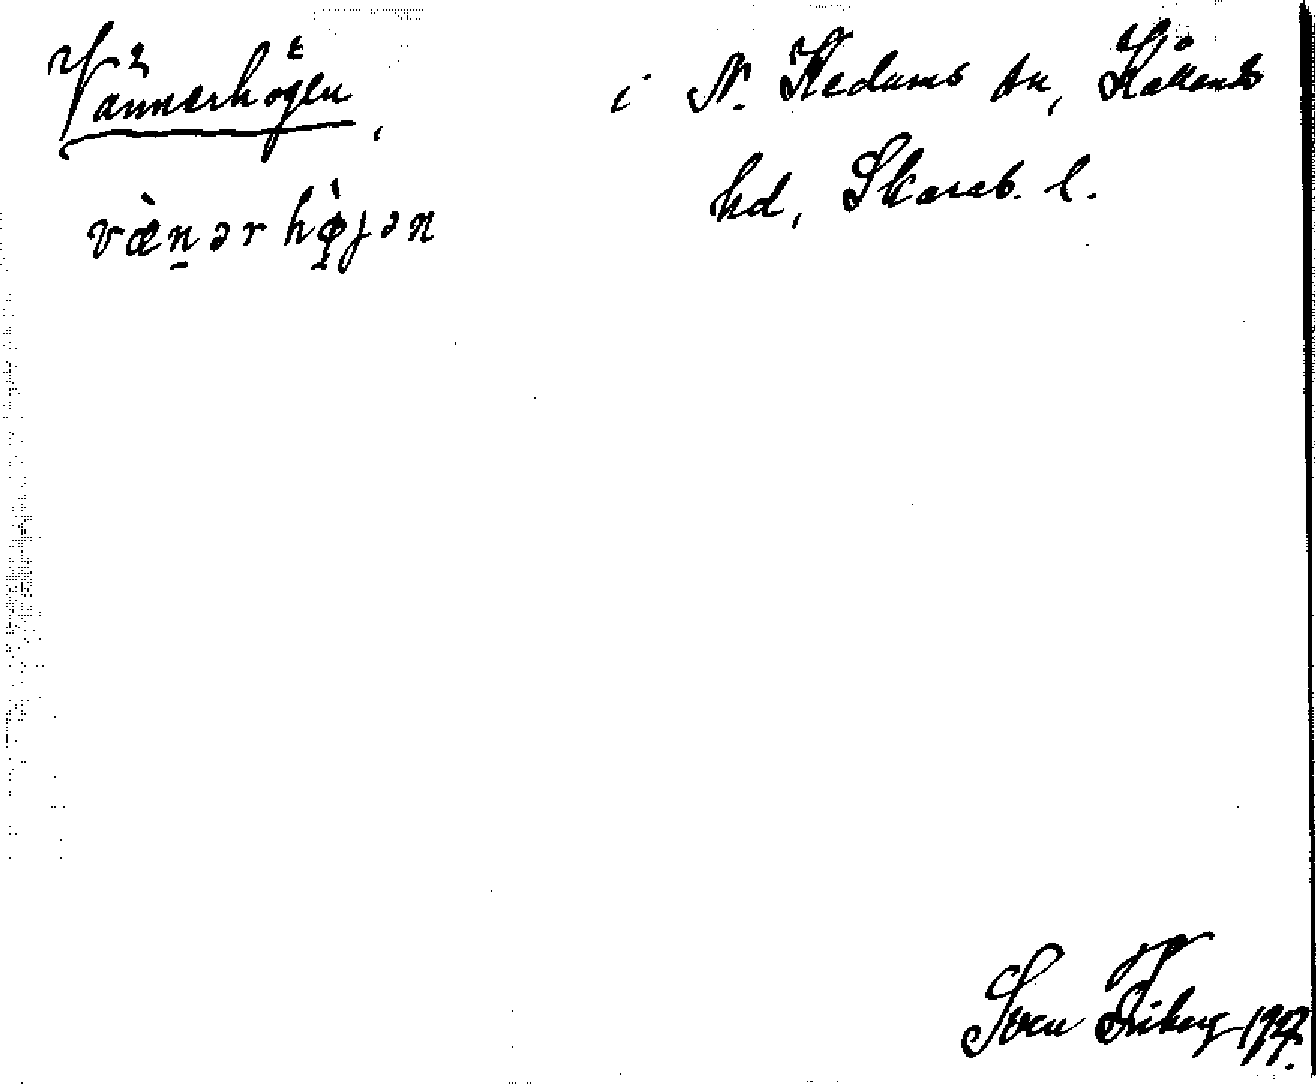 Vännerhögen,
i N. Kedums sn, Kållands
hd, Skarab. l.
vä̀nərhø̀jən
Sven Friberg